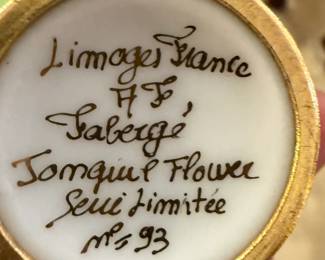 Limoges France
A F
Fabergé
Jonquil Flower
Serie Limitée
n° 93